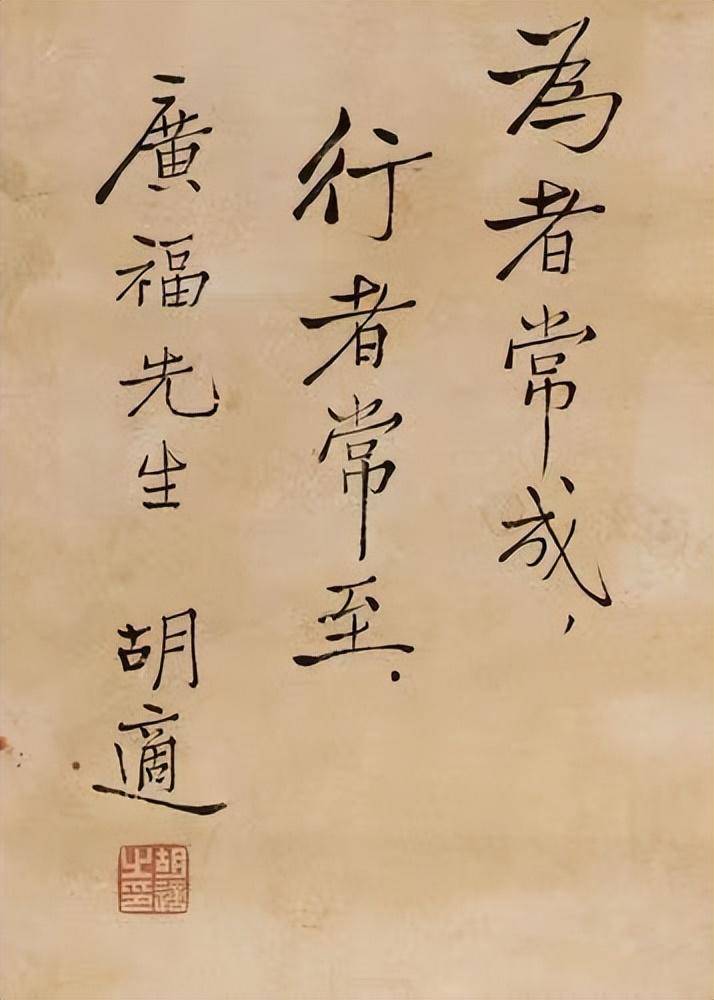 為者常成，
行者常至．
廣福先生 胡適
胡適之印